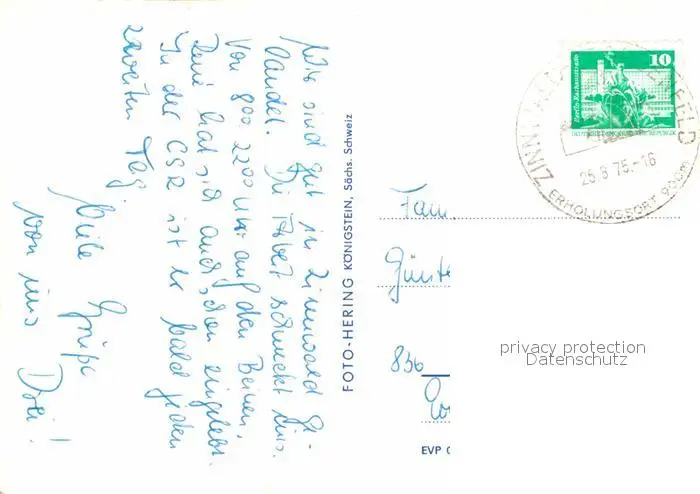 Wir sind gut in Zinnwald ge-
landet. Die Arbeit schmeckt uns.
Von 800 - 2200 Uhr auf den Beinen.
René hat sich auch schon eingelebt.
In der CSR ist er bald jeden
zweiten Tag.
Viele Grüße
von uns Drei!
FOTO-HERING KÖNIGSTEIN, Sächs. Schweiz
10
Berlin-Rathausstraße
DEUTSCHE DEMOKRATISCHE REPUBLIK
25.8.75.-16
ERHOLUNGSORT 900m
Fam.
Günte
836
privacy protection
Datenschutz
EVP 0